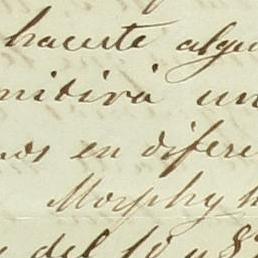 hacerte algu
mitirá un
nos en difere
Morphy h
del 10 y 8